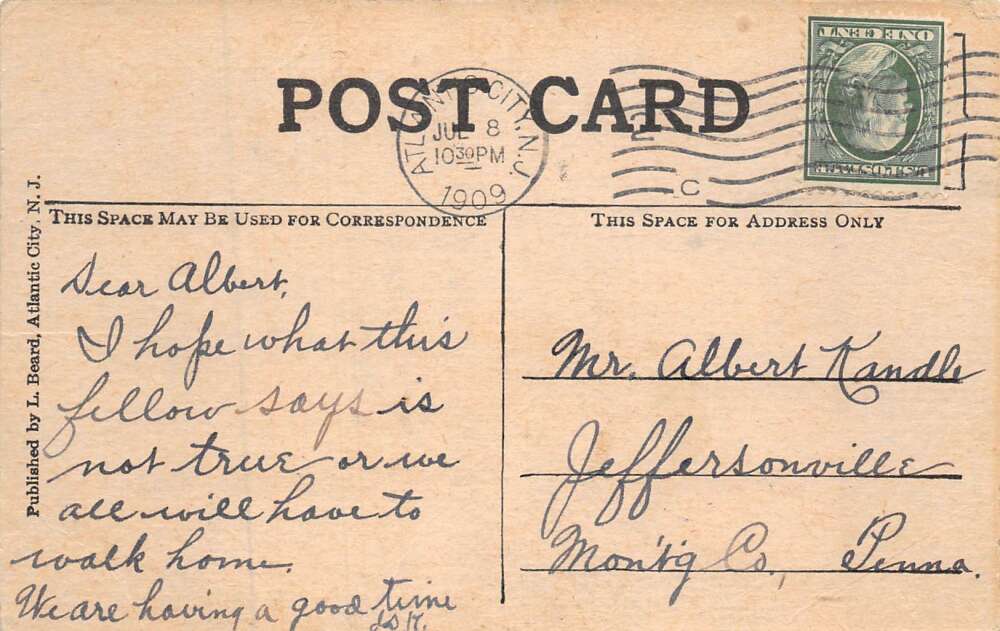 POST CARD
ATLANTIC CITY, N.J.
JUL 8
10 30 PM
1909
2
C
ONE CENT
U.S. POSTAGE
THIS SPACE MAY BE USED FOR CORRESPONDENCE
THIS SPACE FOR ADDRESS ONLY
Published by L. Beard, Atlantic City, N. J.
Dear Albert,
I hope what this
fellow says is
not true or we
all will have to
walk home.
We are having a good time
Mr. Albert Kandle
Jeffersonville
Mont'g Co., Penna.